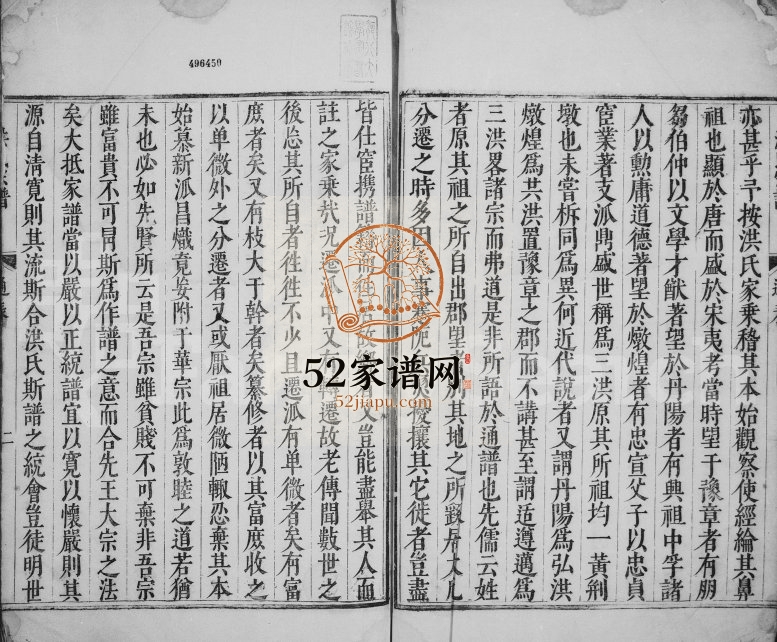 亦甚乎予按洪氏家乘稽其本始觀察使經綸其鼻
祖也顯於唐而盛於宋夷考當時望于豫章者有朋
芻伯仲以文學才猷著望於丹陽者有興祖中孚諸
人以勲庸道德著望於燉煌者有忠宣父子以忠貞
宦業著支派鼎盛世稱爲三洪原其所祖均一黃荊
墩也未嘗柝同爲異何近代說者又謂丹陽爲弘洪
燉煌爲共洪置豫章之郡而不講甚至謂适遵邁爲
三洪畧諸宗而弗道是非所語於通譜也先儒云姓
者原其祖之所自出郡望 別其地之所 居大凡
分遷之時多因 事 阨 攘其它徙者豈盡
皆仕宦携譜 而 人豈能盡舉其人而
註之家乘哉况遷派中又有 遷故老傳聞數世之
後忩其所自者徃徃不少且遷派有单微者矣有富
庶者矣又有枝大于幹者矣纂修者以其富庶收之
以单微外之分遷者又或厭祖居微陋輙忍棄其本
始慕新派昌熾竟妄附于華宗此爲敦睦之道若猶
未也必如先賢所云是吾宗雖貧賤不可棄非吾宗
雖富貴不可冐斯爲作譜之意而合先王大宗之法
矣大抵家譜當以嚴以正統譜宜以寬以懷嚴則其
源自清寬則其流斯合洪氏斯譜之統會豈徒明世
二
496450
52家谱网
52jiapu.com